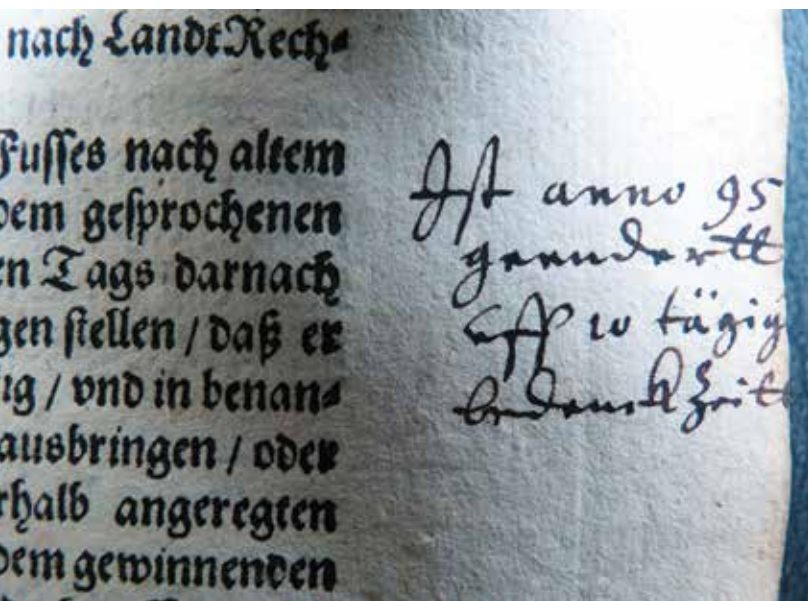 nach LandtRech⸗
Fusses nach altem
dem gesprochenen
en Tags darnach
gen stellen / daß er
ig / vnd in benan⸗
ausbringen / oder
rhalb angeregten
dem gewinnenden
Ist anno 95
geendertt
uff 10 tägig
bedenck Zeitt